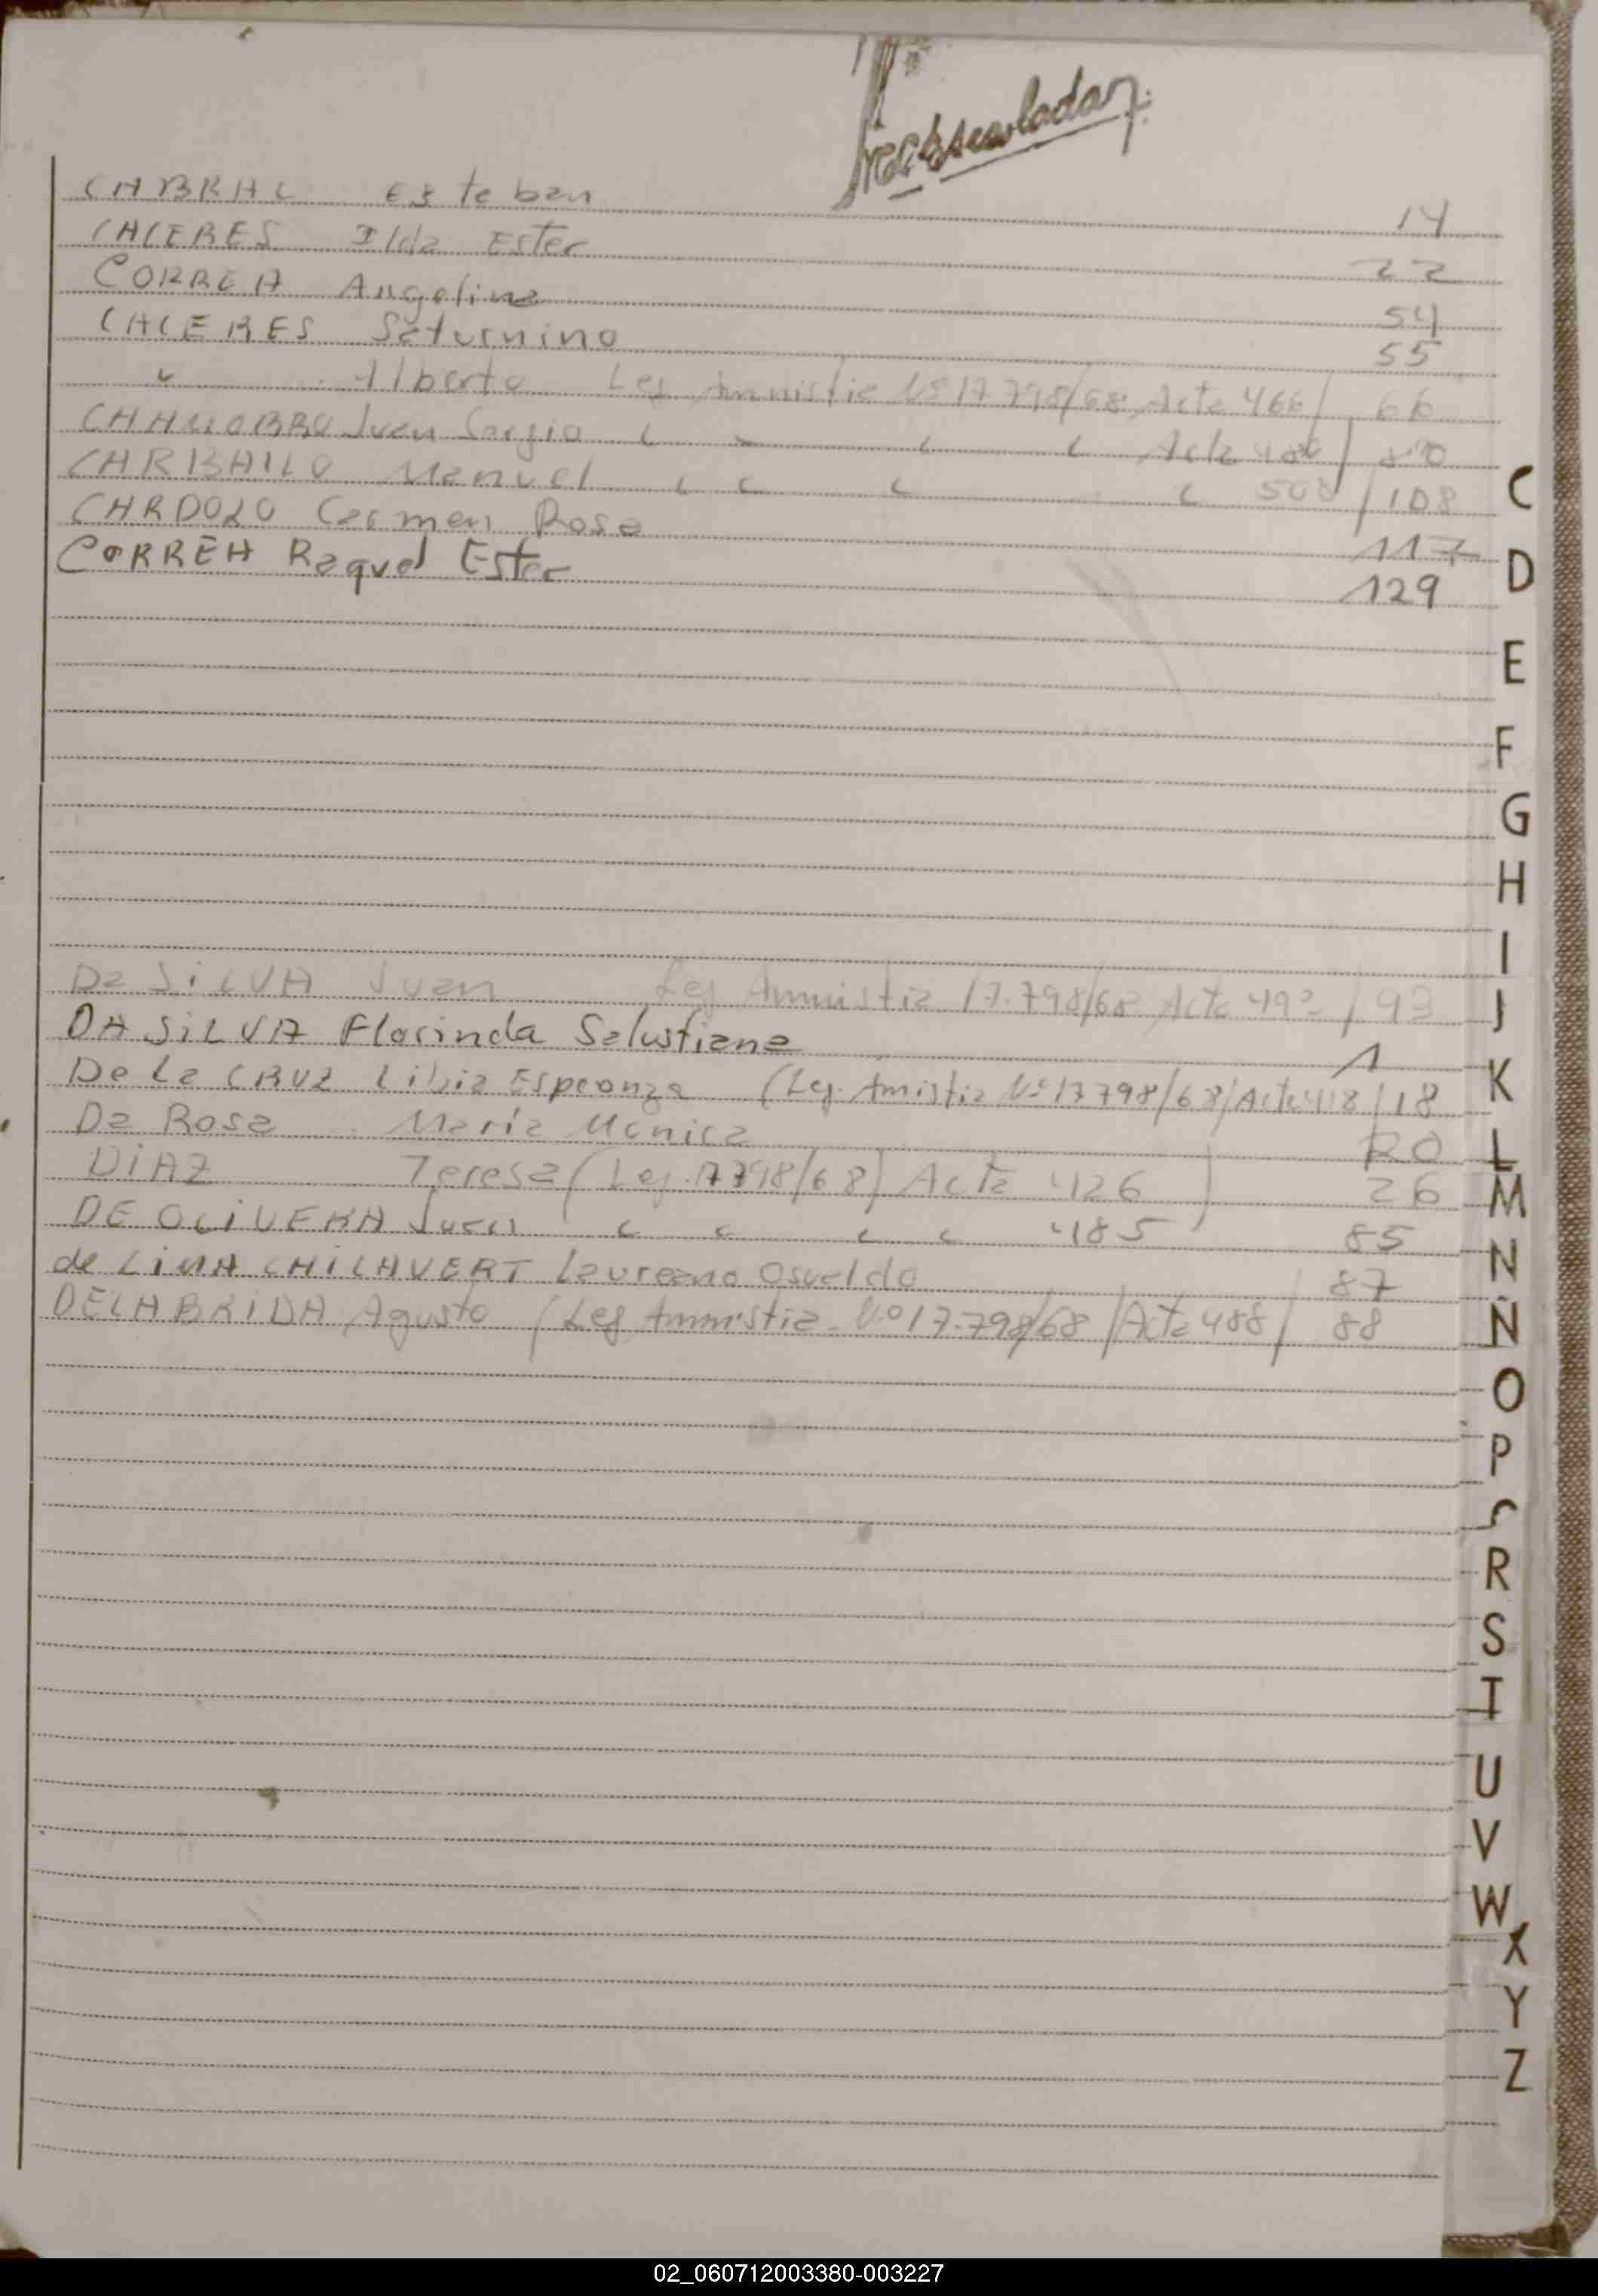 CABRAL Esteban 14
CACERES Ilda Ester 22
CORREA Angelina 54
CACERES Saturnino 55
" Alberto Ley Amnistia Nº 17.798/68 Acta 466/ 66
Juan Sergio " " " " Acta /
CARBALLO Manuel " " " " 508 / 108
CARDOZO Carmen Rosa 117
CORREA Raquel Ester 129
C
D
E
F
G
H
I
Da SiLVA Juan Ley Amnistia 17.798/68 Acta 493 / 93
J
DA SiLVA Florinda Salustiana 1
De La CRUZ Libia Esperanza (Ley. Amistia Nº 17798/68/Acta 418 / 18
K
Da Rosa Maria Monica 20
L
DiAZ Teresa (Ley. 17798/68) Acta 426 ) 26
M
DE OLiVERA Juan " " " " 485 85
N
de LiMA CHiLAVERT Laureano Osvaldo 87
DELABRIDA Agusto (Ley Amnistia Nº 17.798/68 /Acta 488/ 88
Ñ
O
P
R
S
T
U
V
W
X
Y
Z
02_060712003380-003227